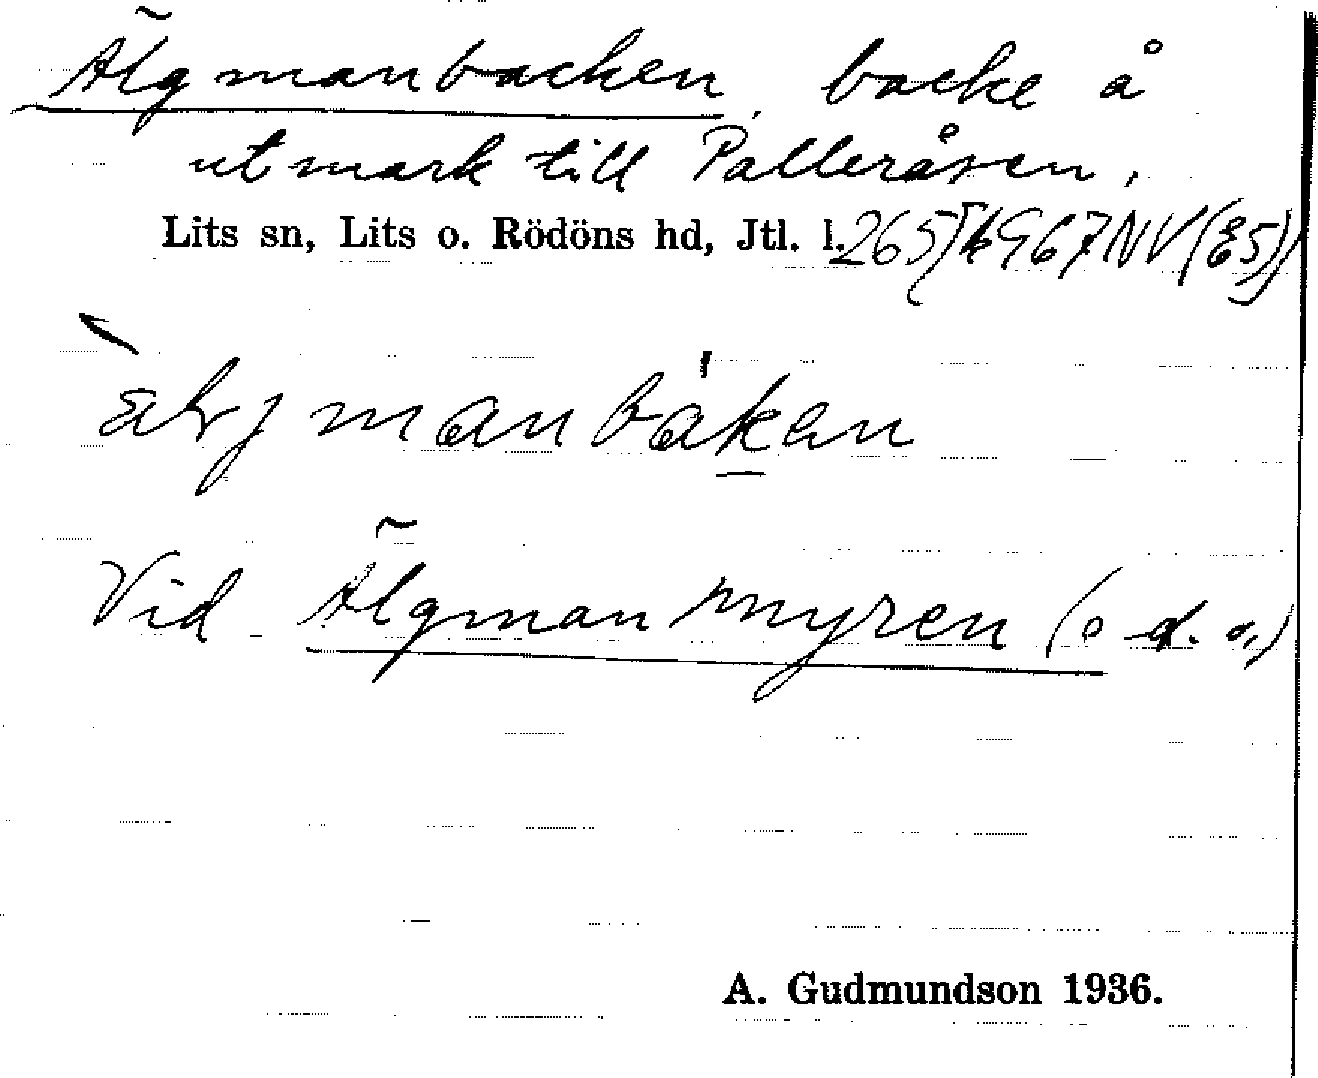 Älgmanbacken, backe å
utmark till Palleråsen.
Lits sn, Lits o. Rödöns hd, Jtl. l.
Vid Älgmanmyren (o d. o.)
A. Gudmundson 1936.